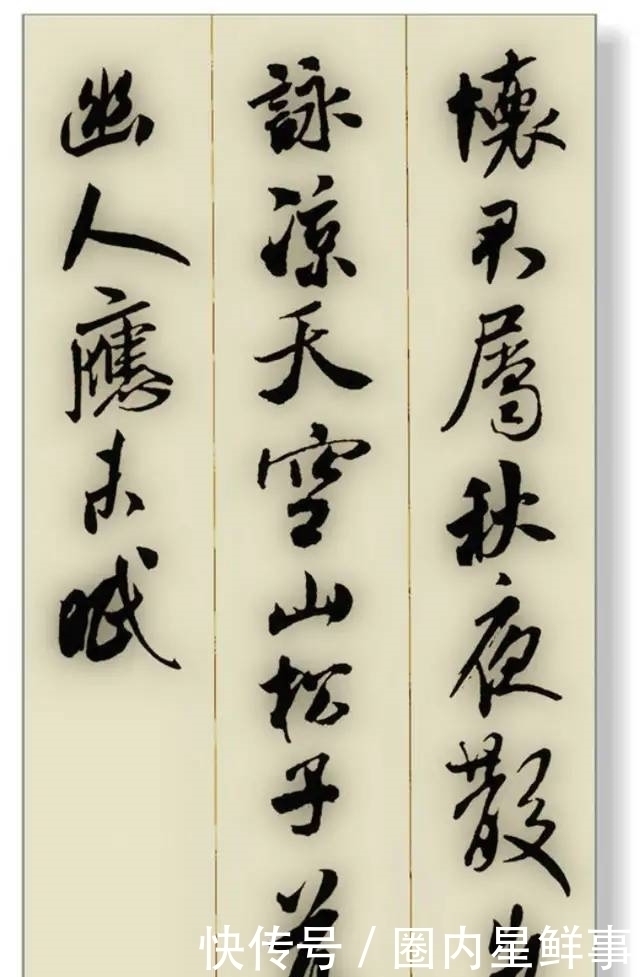 懷君屬秋夜散
詠涼天空山松子
幽人應未眠
快传号 / 圈内星鲜事